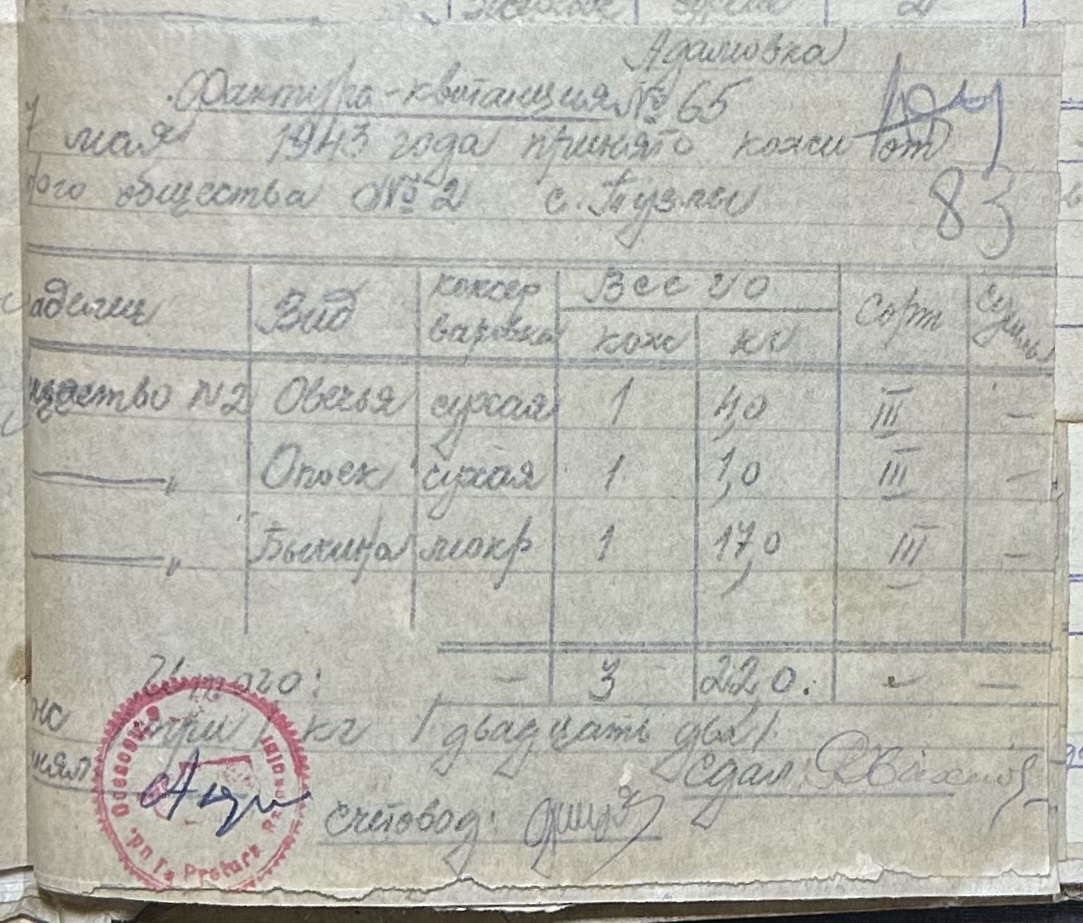 Адамовка
Фактура-квитанция № 65
7 мая 1943 года принято кожи от
ного общества № 2 с. Тузлы
83
Вид консер Весс и о сорт сумма
варовка кож кг
№2 Овечья сухая 1 4,0 III —
—„ Опоек сухая 1 1,0 III —
—„ Бычина мокр 1 17,0 III —
Итого: — 3 22,0. — —
три / кг / двадцать два /.
нял: сдал:
счетовод: